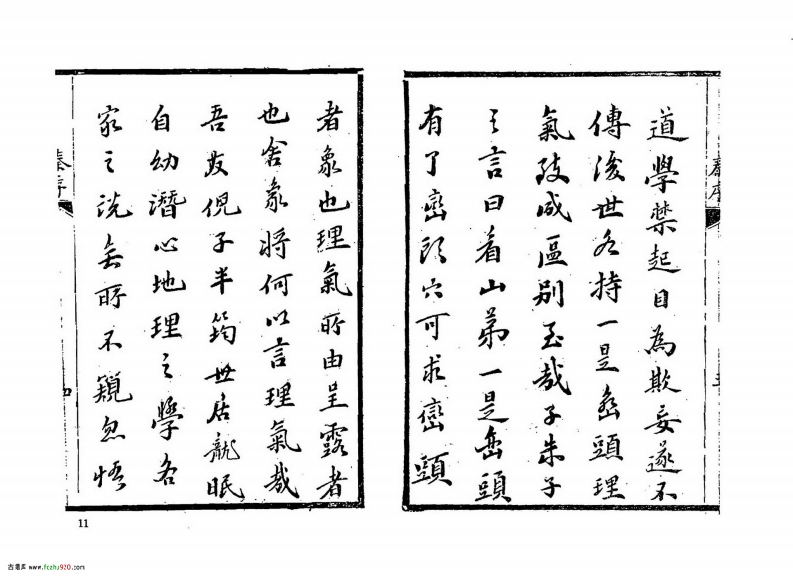 道學禁起目為欺妄遂不
傳後世各持一是巒頭理
氣故成區別至哉子朱子
之言曰看山第一是巒頭
有了巒頭穴可求巒頭
秦序
者象也理氣所由呈露者
也舍象將何以言理氣哉
吾友倪子半筠世居龍眠
自幼潛心地理之學各
家之說無所不窺忽悟
秦序
四
11
古易库 www.fczhu920.com